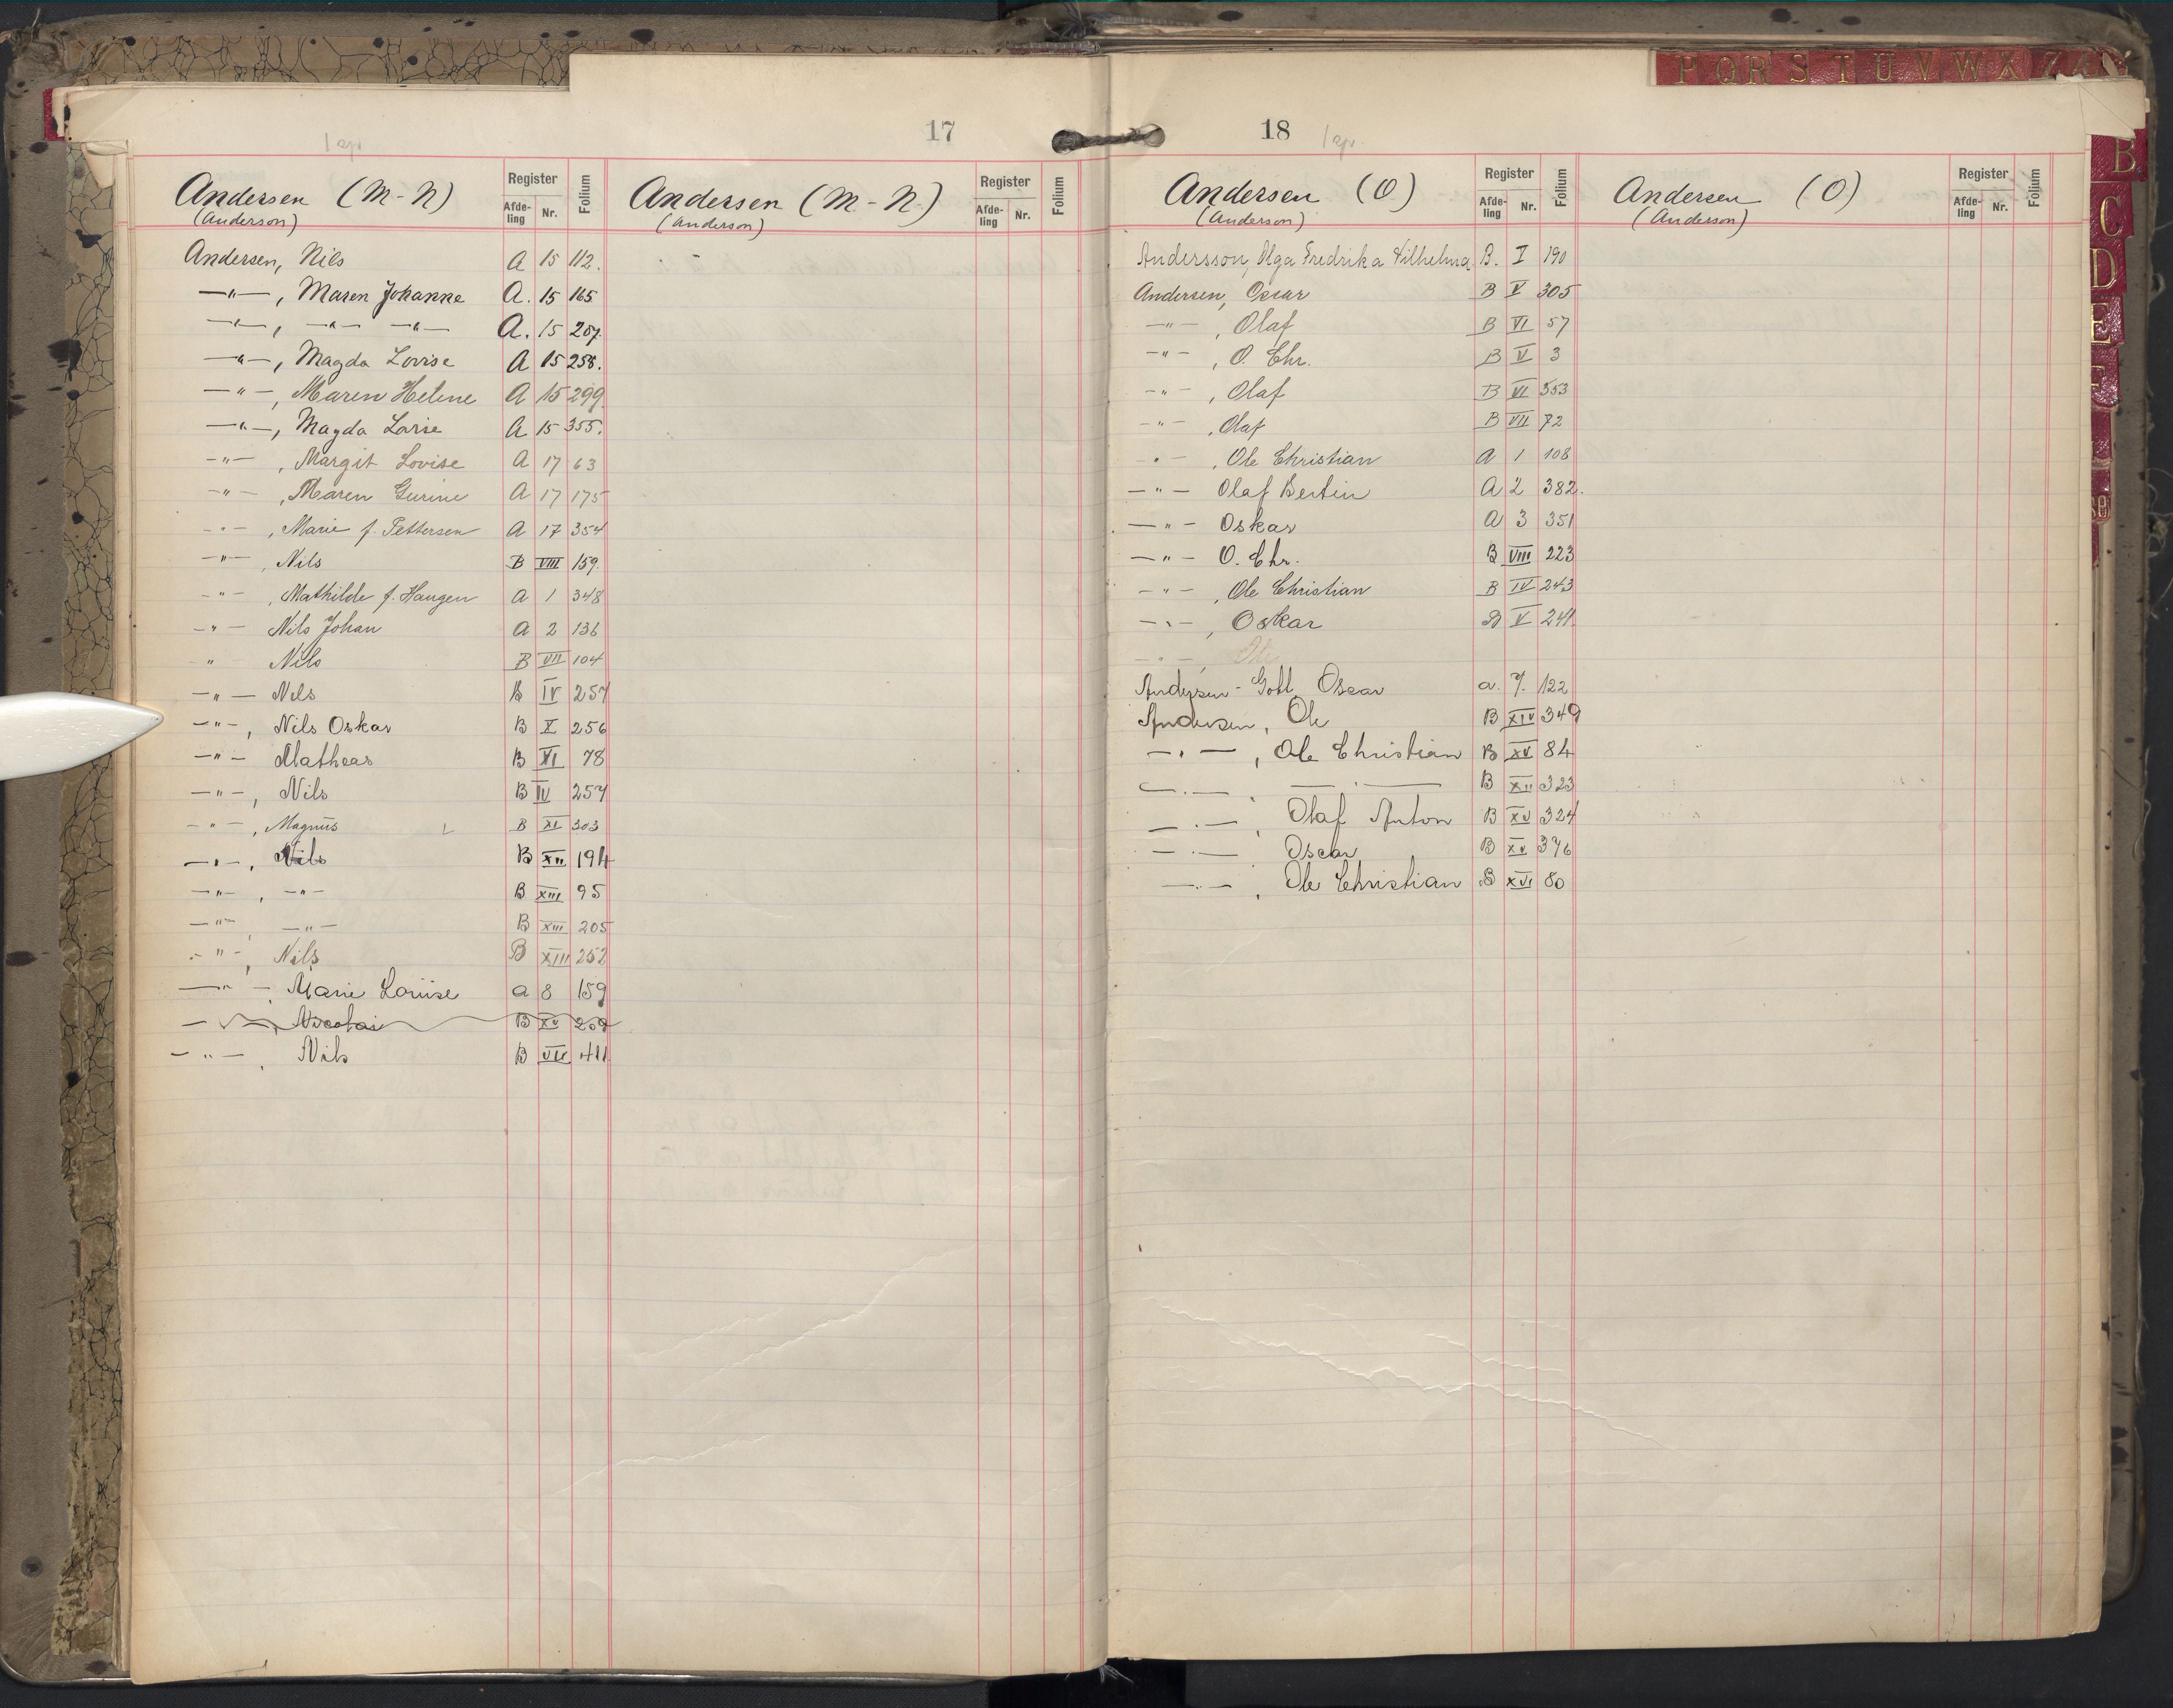 17
Andersen (M-N)
(Anderson)
Register
Afde-
ling
Nr.
Folium
Andersen (M-N)
(Anderson)
Register
Afde-
ling
Nr.
Folium
Andersen, Nils A 15 112.
—"—, Maren Johanne A. 15 165
—"—, —"— —"— A. 15 207.
—"—, Magda Lovise A 15 258.
—"—, Maren Helene A 15 299.
—"—, Magda Lovise A 15 355.
—"—, Margit Lovise A 17 63
—"—, Maren Gurine A 17 175
—"—, Marie f. Pettersen A 17 354
—"—, Nils B VIII 159.
—"—, Mathilde f. Haugen A 1 348
—"— Nils Johan A 2 136
" Nils B VII 104
—"— Nils B IV 257
—"—, Nils Oskar B X 256
—"— Matheas B XI 78
—"—, Nils B IV 257
—"—, Magnus B XI 303
—"—, Nils B XII 194
—"—, —"— B XIII 95
—"—, —"— B XIII 205
—"—, Nils B XIII 252
—"—, Marie Louise a 8 159
—"—, Nicolai B XV 209
—"—, Nils B VII 411
18
Andersen (O)
(Anderson)
Register
Afde-
ling
Nr.
Folium
Andersen (O)
(Anderson)
Register
Afde-
ling
Nr.
Folium
Andersson, Olga Fredrika Vilhelma B. I 190
Andersen, Oscar B V 305
—"—, Olaf B VI 57
—"—, O. Chr. B V 3
—"—, Olaf B VI 353
—"—, Olaf B VII 72
—"—, Ole Christian A 1 108
—"— Olaf Bertin A 2 382.
—"— Oskar A 3 351
—"— O. Chr. B VIII 223
—"—, Ole Christian B IV 243
—"—, Oskar B V 241.
—"—, Ole
Andersen-Gott, Oscar a. 7. 122
Andersen, Ole B XIV 349
—"—, Ole Christian B XV 84
—"—, —"— B XII 323
—"—, Olaf Anton B XV 324
—"— Oscar B XV 376
—"—, Ole Christian B XVI 80
P Q R S T U V W X Z Æ
B
C
D
E
F